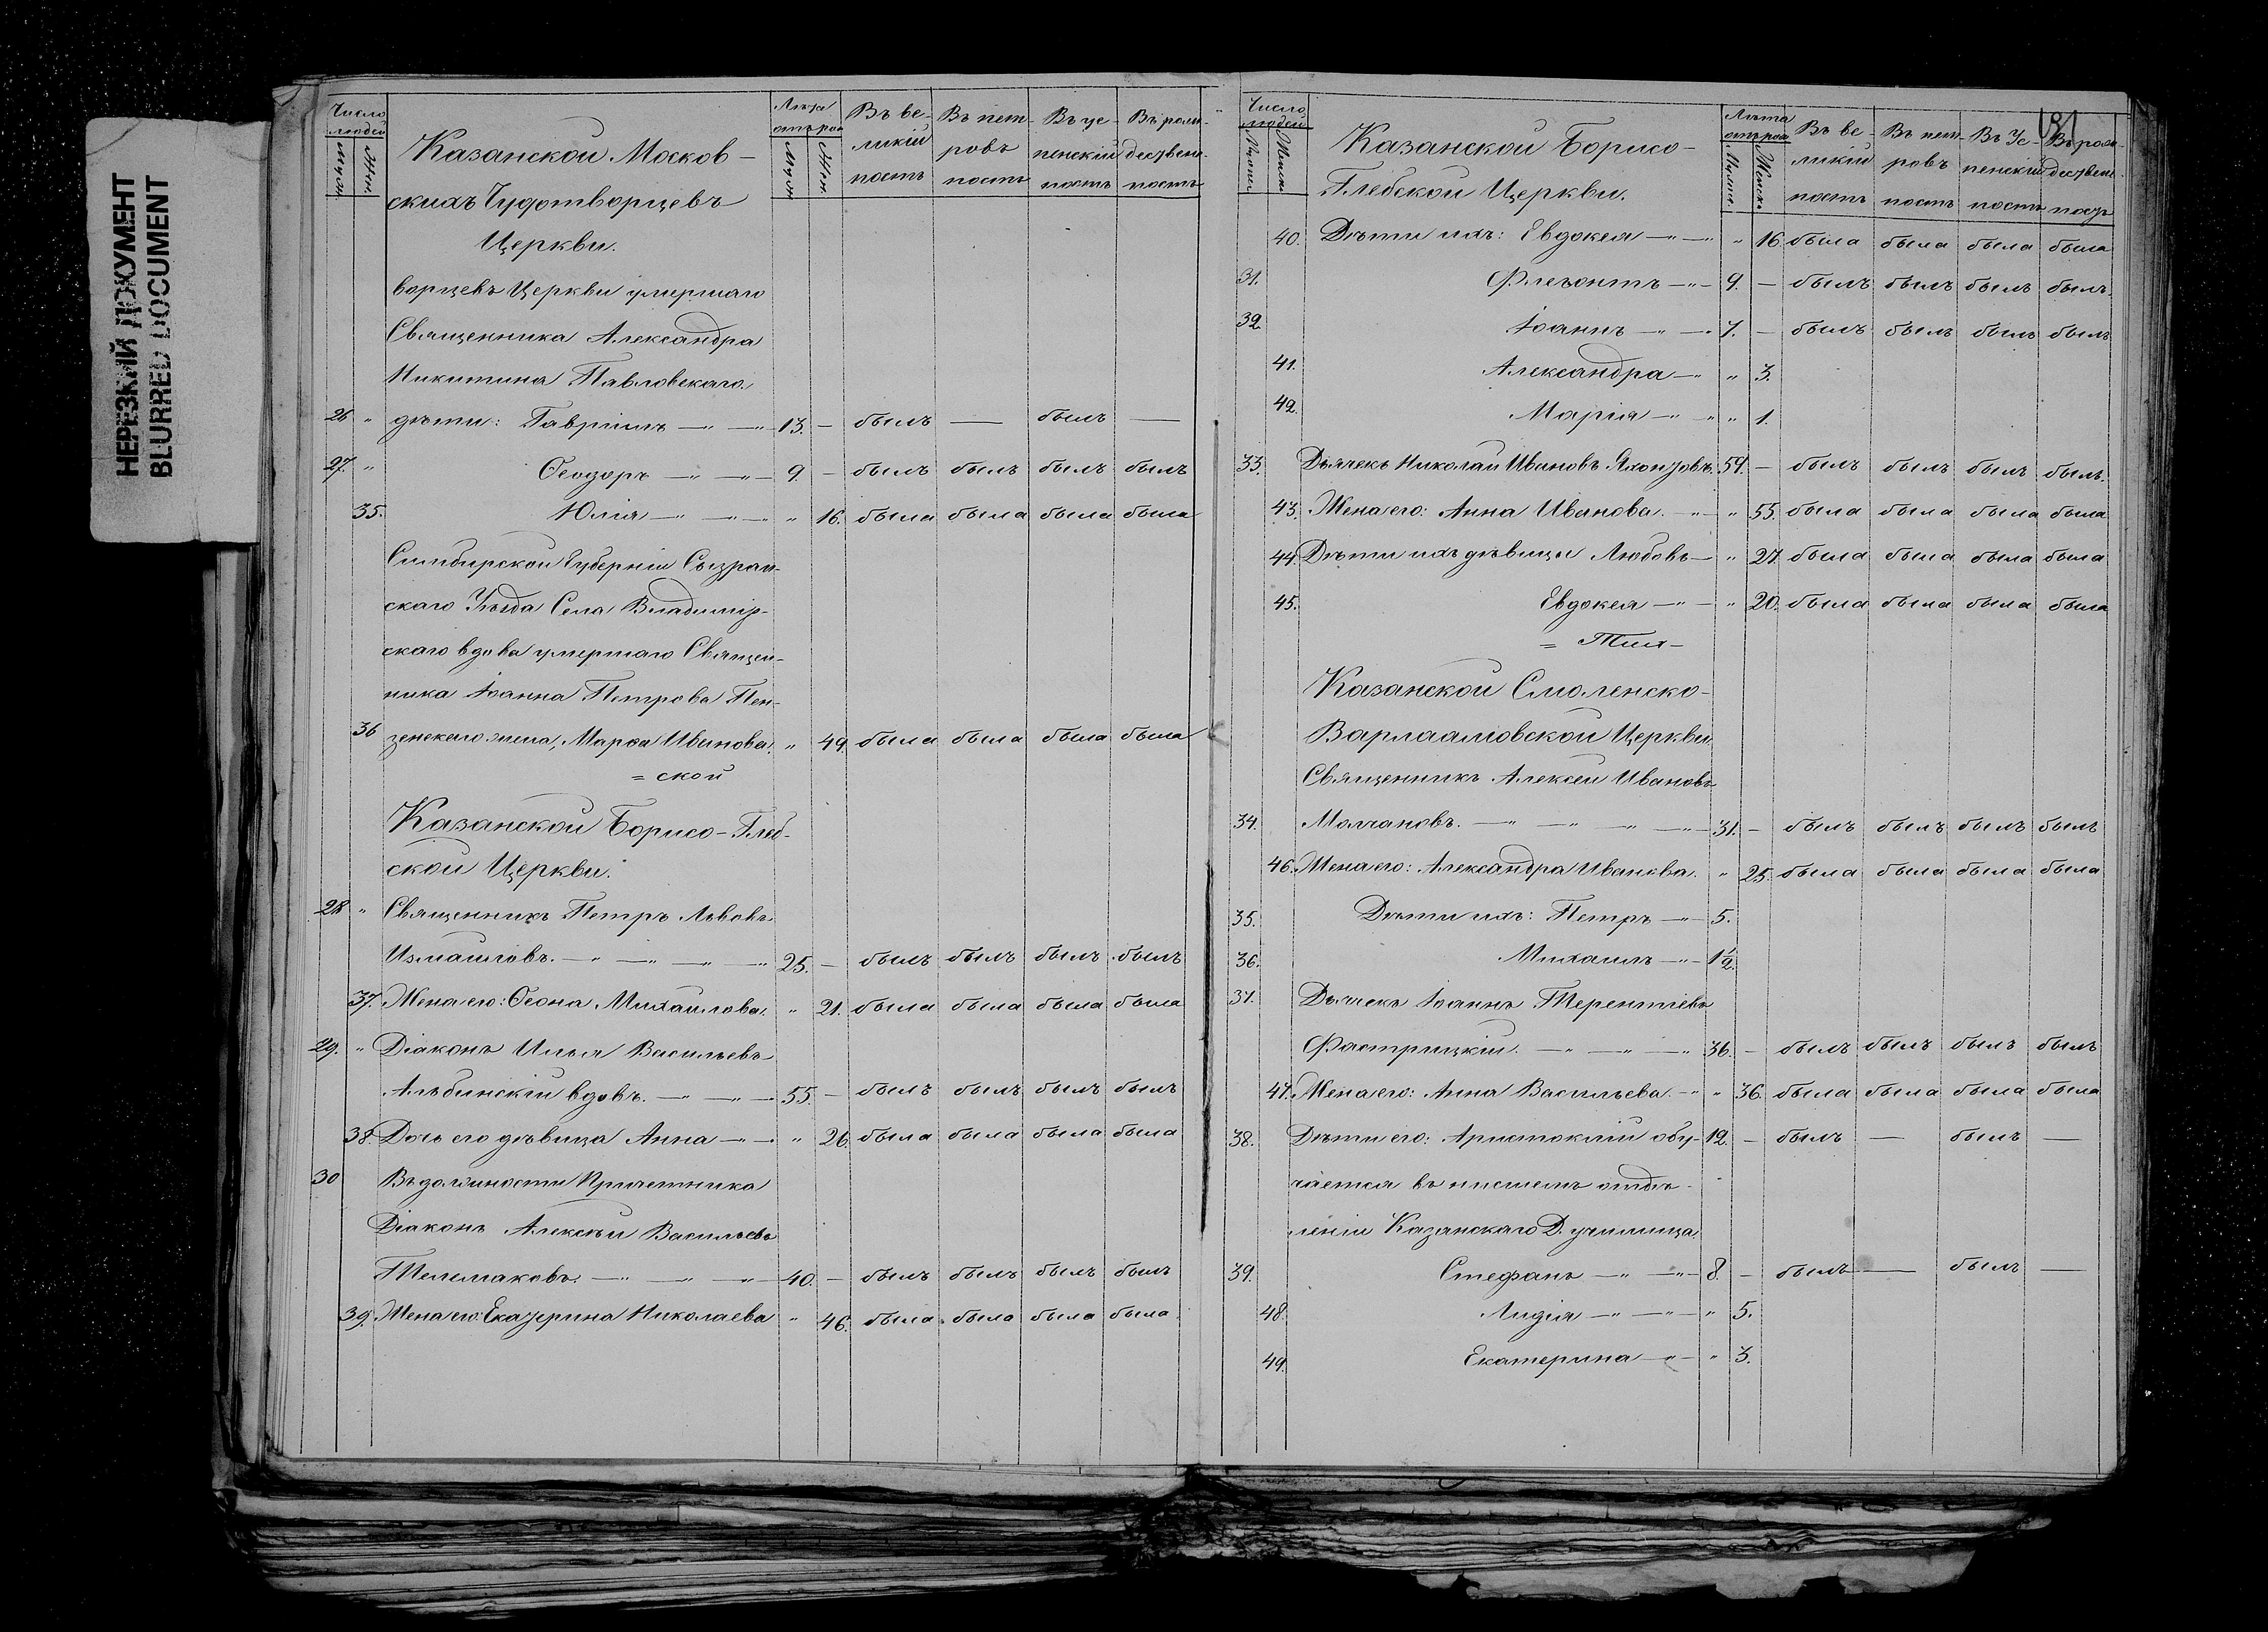 НЕРЕЗКИЙ ДОКУМЕНТ
BLURRED DOCUMENT
Число людей Муж. Жен. Лѣта отъ род. Муж. Жен. Въ великій постъ Въ петровъ постъ Въ успенскій постъ Въ рождественс. постъ
Казанской Москов-
скихъ Чудотворцевъ
Церкви.
ворцевъ Церкви умершаго
Священника Александра
Никитина Павловскаго
26 " дѣти: Гавріилъ — " — " 13. — былъ — былъ —
27. " Ѳеодоръ — " — " — 9. — былъ былъ былъ былъ
35. Юлія — " — " — " 16. была была была была
Симбирской Губерніи Сызран-
скаго Уѣзда Села Владимір-
скаго вдова умершаго Священ-
ника Іоанна Петрова Пен-
36 зенскаго жена, Марѳа Иванова. " 49. была была была была
= ской
Казанской Борисо-Глеб-
ской Церкви.
28 " Священникъ Петръ Львовъ
Измаиловъ. — " — " — " — " 25. — былъ былъ былъ былъ
37. Жена его: Ѳеона Михаилова. " 21. была была была была
29. " Діаконъ Илья Васильевъ
Альбинскій вдовъ. — " — " — 55. — былъ былъ былъ былъ
38. Дочь его дѣвица Анна — " — " 26. была была была была
30 Въ должности Причетника
Діаконъ Алексѣй Васильевъ
Телемаковъ. — " — " — " — 40. — былъ былъ былъ былъ
39. Жена его: Екатерина Николаева " 46. была была была была
181
Число людей Мужс. Женск. Лѣта отъ род. Мужс. Женск. Въ великій постъ Въ петровъ постъ Въ Успенскій постъ Въ рождествен. постъ
Казанской Борисо-
Глебской Церкви.
40. Дѣти ихъ: Евдокея — " — " " 16. была была была была
31. Флегонтъ — " — 9. — былъ былъ былъ былъ.
32. Іоаннъ — " — " 7. — былъ былъ былъ былъ
41. Александра — " " 3.
42. Марія — " " " 1.
33. Дьячекъ Николай Ивановъ Яхонтовъ. 59. — былъ былъ былъ былъ.
43. Жена его: Анна Иванова. — " — " 55. была была была была
44. Дѣти ихъ дѣвицы Любовь — " 27. была была была была
45. Евдокея — " — " 20. была была была была
= Тихв-
Казанской Смоленско-
Варлаамовской Церкви
Священникъ Алексей Ивановъ
34. Молчановъ. — " — " — " — " — 31. — былъ былъ былъ былъ
46. Жена его: Александра Иванова. " 25. была была была была
35. Дѣти ихъ: Петръ — " — 5.
36. Михаилъ — " — 1 1/2.
37. Дьячекъ Іоаннъ Терентіевъ
Фастрицкій. — " — " — " 36. — былъ былъ былъ былъ
47. Жена его: Анна Васильева. — " " 36. была была была была
38. Дѣти его: Аристоклій обу- 12. — былъ — былъ —
чается въ низшемъ отдѣ-
леніи Казанскаго Д. училища.
39. Стефанъ — " — " — 8. — былъ — былъ —
48. Лидія — " — " — " 5.
49. Екатерина — " — " 3.